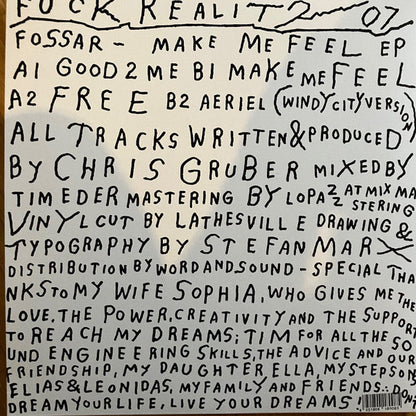 FUCK REALITY 07
FOSSAR - MAKE ME FEEL EP
A1 GOOD 2 ME B1 MAKE ME FEEL
A2 FREE B2 AERIEL (WINDY CITY VERSION)
ALL TRACKS WRITTEN & PRODUCED
BY CHRIS GRUBER MIXED BY
TIM EDER MASTERING BY LOPAZZ AT MIX MA
STERING
VINYL CUT BY LATHESVILLE DRAWING &
TYPOGRAPHY BY STEFAN MARX
DISTRIBUTION BY WORDANDSOUND - SPECIAL THA
NKS TO MY WIFE SOPHIA, WHO GIVES ME THE
LOVE, THE POWER, CREATIVITY AND THE SUPPORT
TO REACH MY DREAMS; TIM FOR ALL THE SO
UND ENGINEERING SKILLS, THE ADVICE AND OUR
FRIENDSHIP, MY DAUGHTER ELLA, MY STEPSON
ELIAS & LEONIDAS, MY FAMILY AND FRIENDS.:
DREAM YOUR LIFE, LIVE YOUR DREAMS